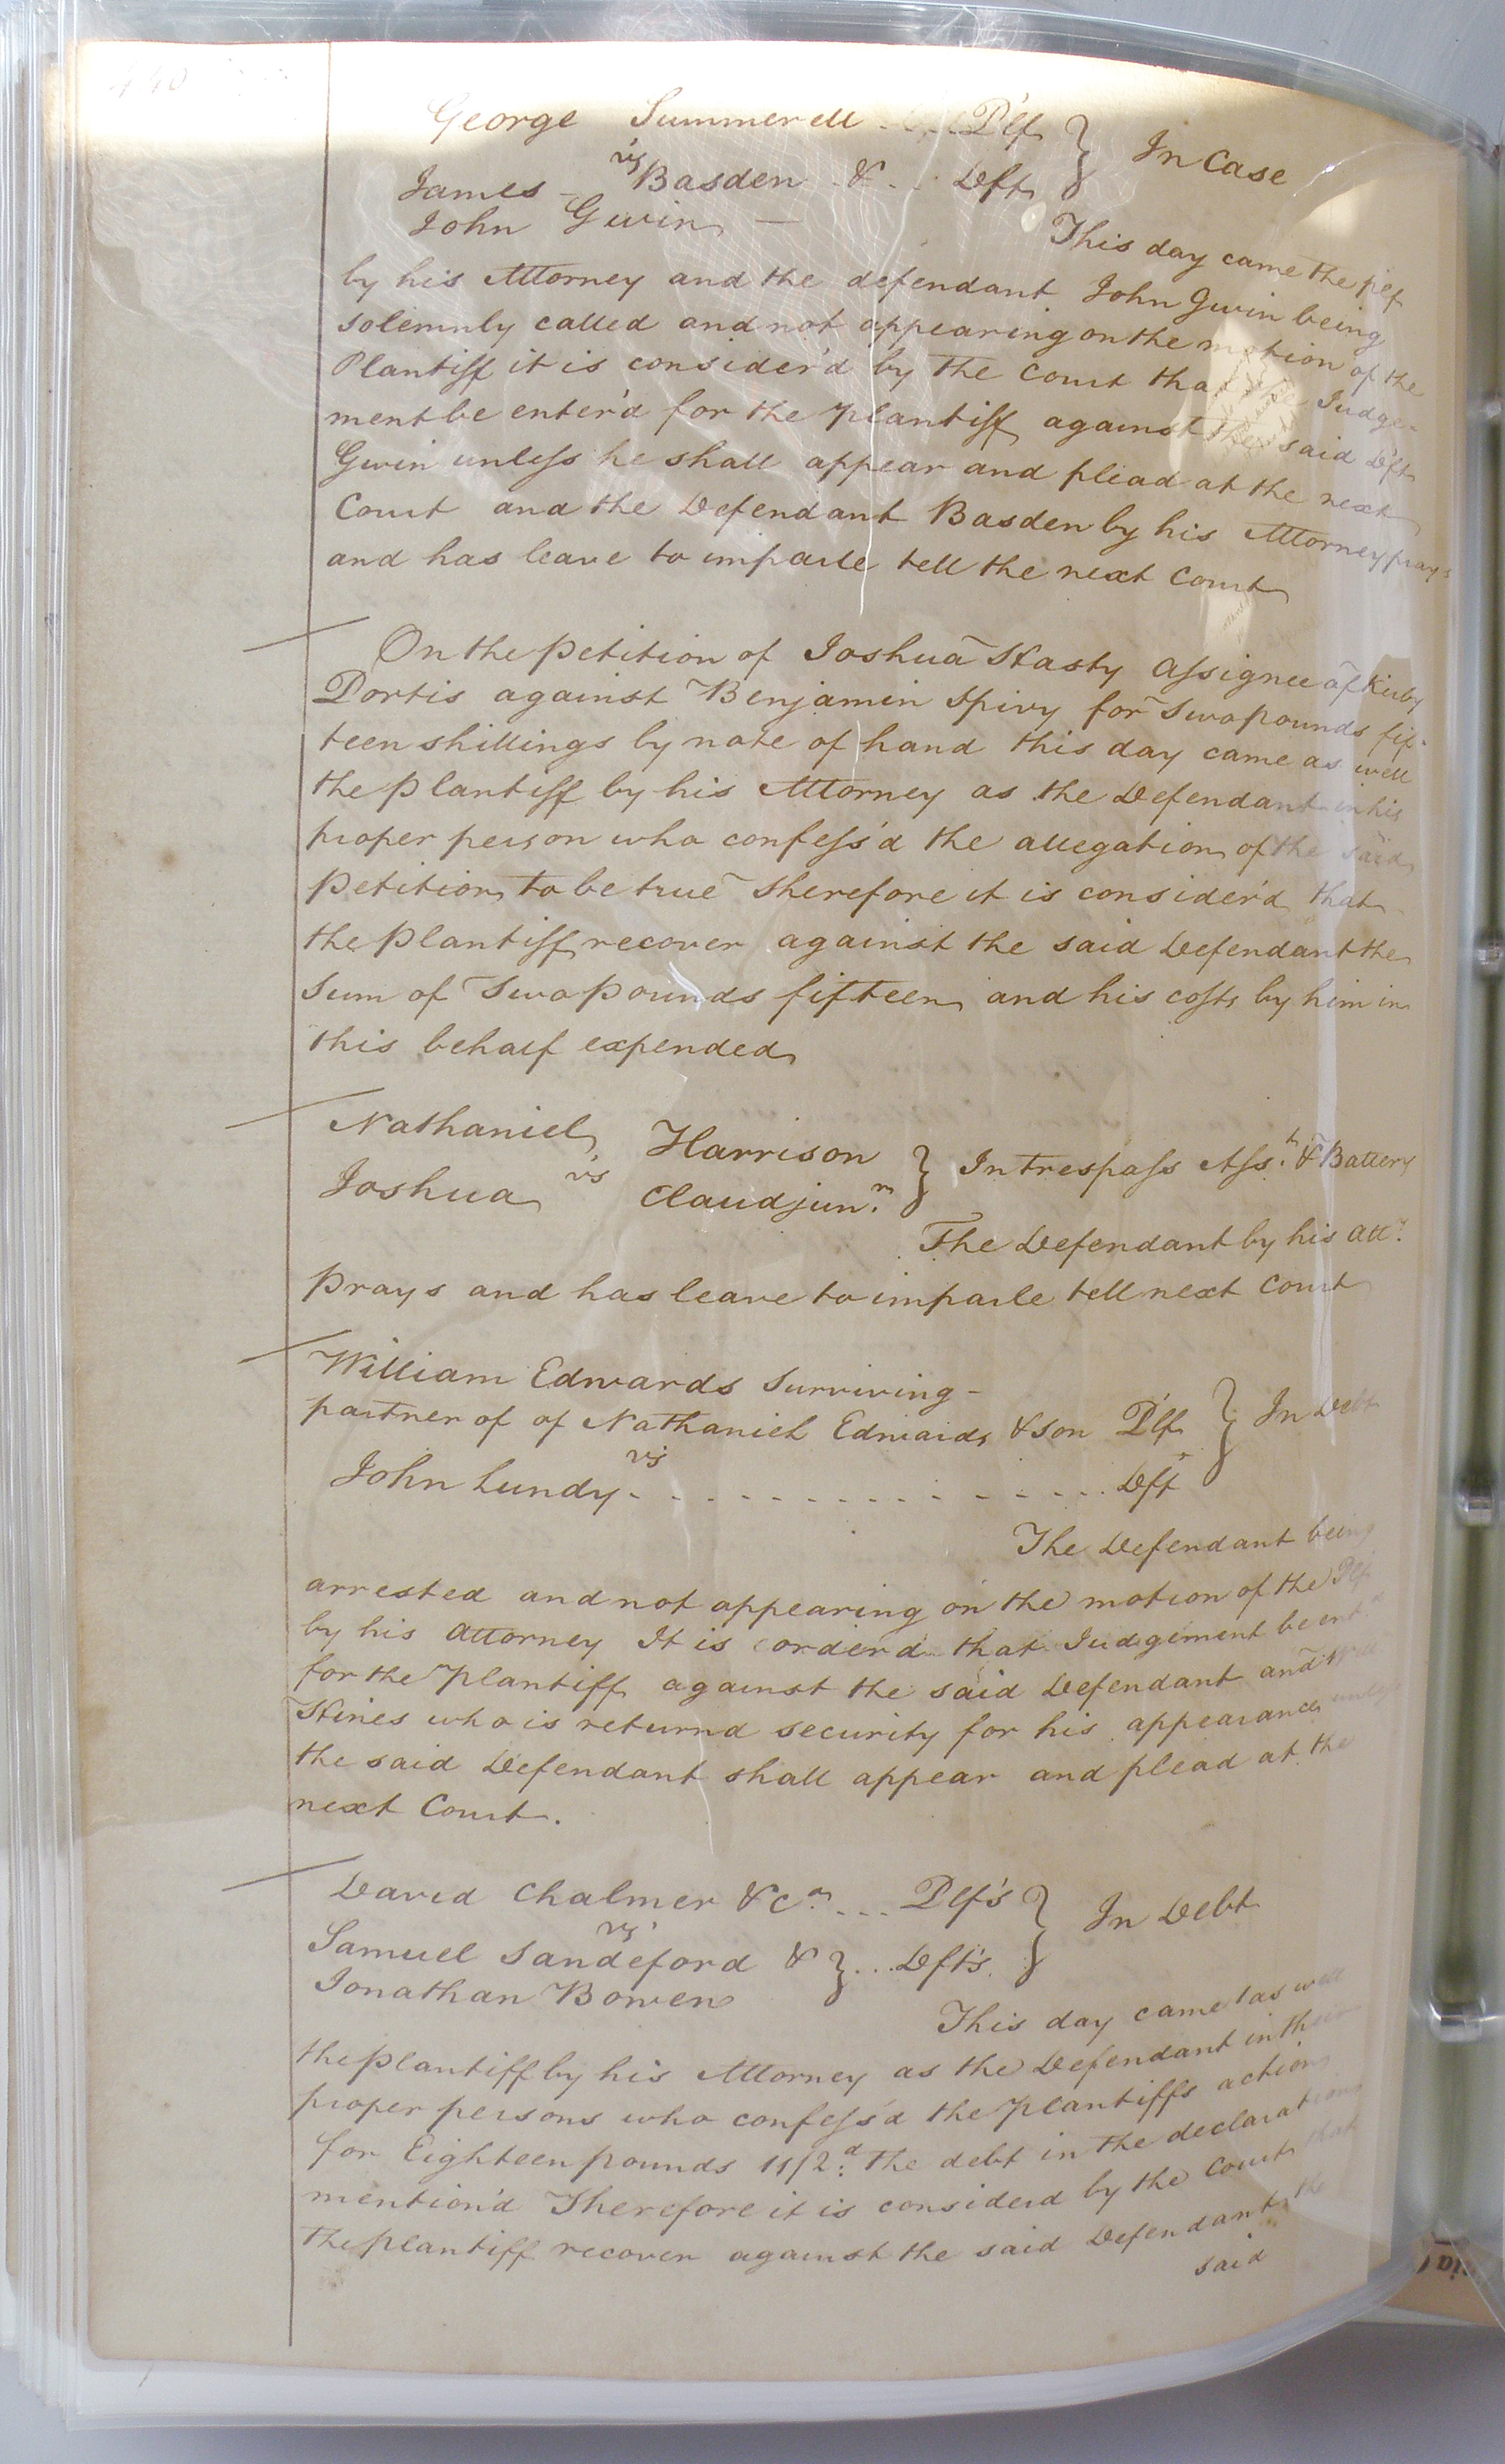 440
George Summerell Plf } In Case
vs
James Basden & .. Dft
John Gwin —
This day came the plf
by his Attorney and the defendant John Gwin being
solemnly called and not appearing on the motion of the
Plantiff it is consider'd by the Court that Judge-
ment be enter'd for the plantiff against the said Dft
Gwin unless he shall appear and plead at the next
Court and the Defendant Basden by his Attorney prays
and has leave to imparle tell the next Court
On the petition of Joshua Hasty Assignee of Kirby
Portis against Benjamin Spivy for Two pounds fif-
teen shillings by note of hand this day came as well
the plantiff by his Attorney as the Defendant in his
proper person who confess'd the allegation of the said
petition to be true Therefore it is consider'd that
the plantiff recover against the said Defendant the
Sum of Two pounds fifteen and his costs by him in
this behalf expended
Nathaniel Harrison } In trespass Asst. & Battery
vs
Joshua Claud junr.
The Defendant by his Atty.
prays and has leave to imparle tell next Court
William Edwards Surviving -
partner of of Nathaniel Edwards & son Plf } In Debt
vs
John Lundy - - - - - - - - - - - - - Dft
The Defendant being
arrested and not appearing on the motion of the Plf
by his Attorney It is order'd that Judgement be ent.d
for the plantiff against the said Defendant and
Hines who is returnd security for his appearance unless
the said Defendant shall appear and plead at the
next Court.
David Chalmer & Co. ... Plf's } In Debt
vs
Samuel Sandeford & } ... Dft's
Jonathan Bowen
This day came as well
the plantiff by his Attorney as the Defendant in their
proper persons who confess'd the plantiffs action
for Eighteen pounds 11/2d. the debt in the declaration
mention'd Therefore it is considerd by the Court that
the plantiff recover against the said Defendant the
said